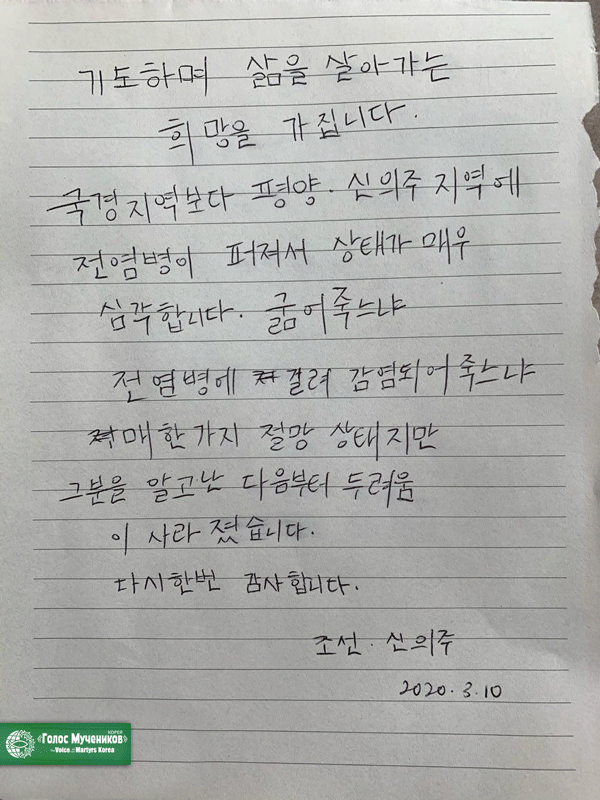 기도하며 삶을 살아가는
희망을 가집니다.
국경지역보다 평양·신의주 지역에
전염병이 퍼져서 상태가 매우
심각합니다. 굶어죽느냐
전염병에 걸려 감염되어죽느냐
매한가지 절망 상태지만
그분을 알고난 다음부터 두려움
이 사라졌습니다.
다시한번 감사합니다.
조선·신의주
2020.3.10
КОРЕЯ
«Голос Мучеников»
The Voice of the Martyrs Korea